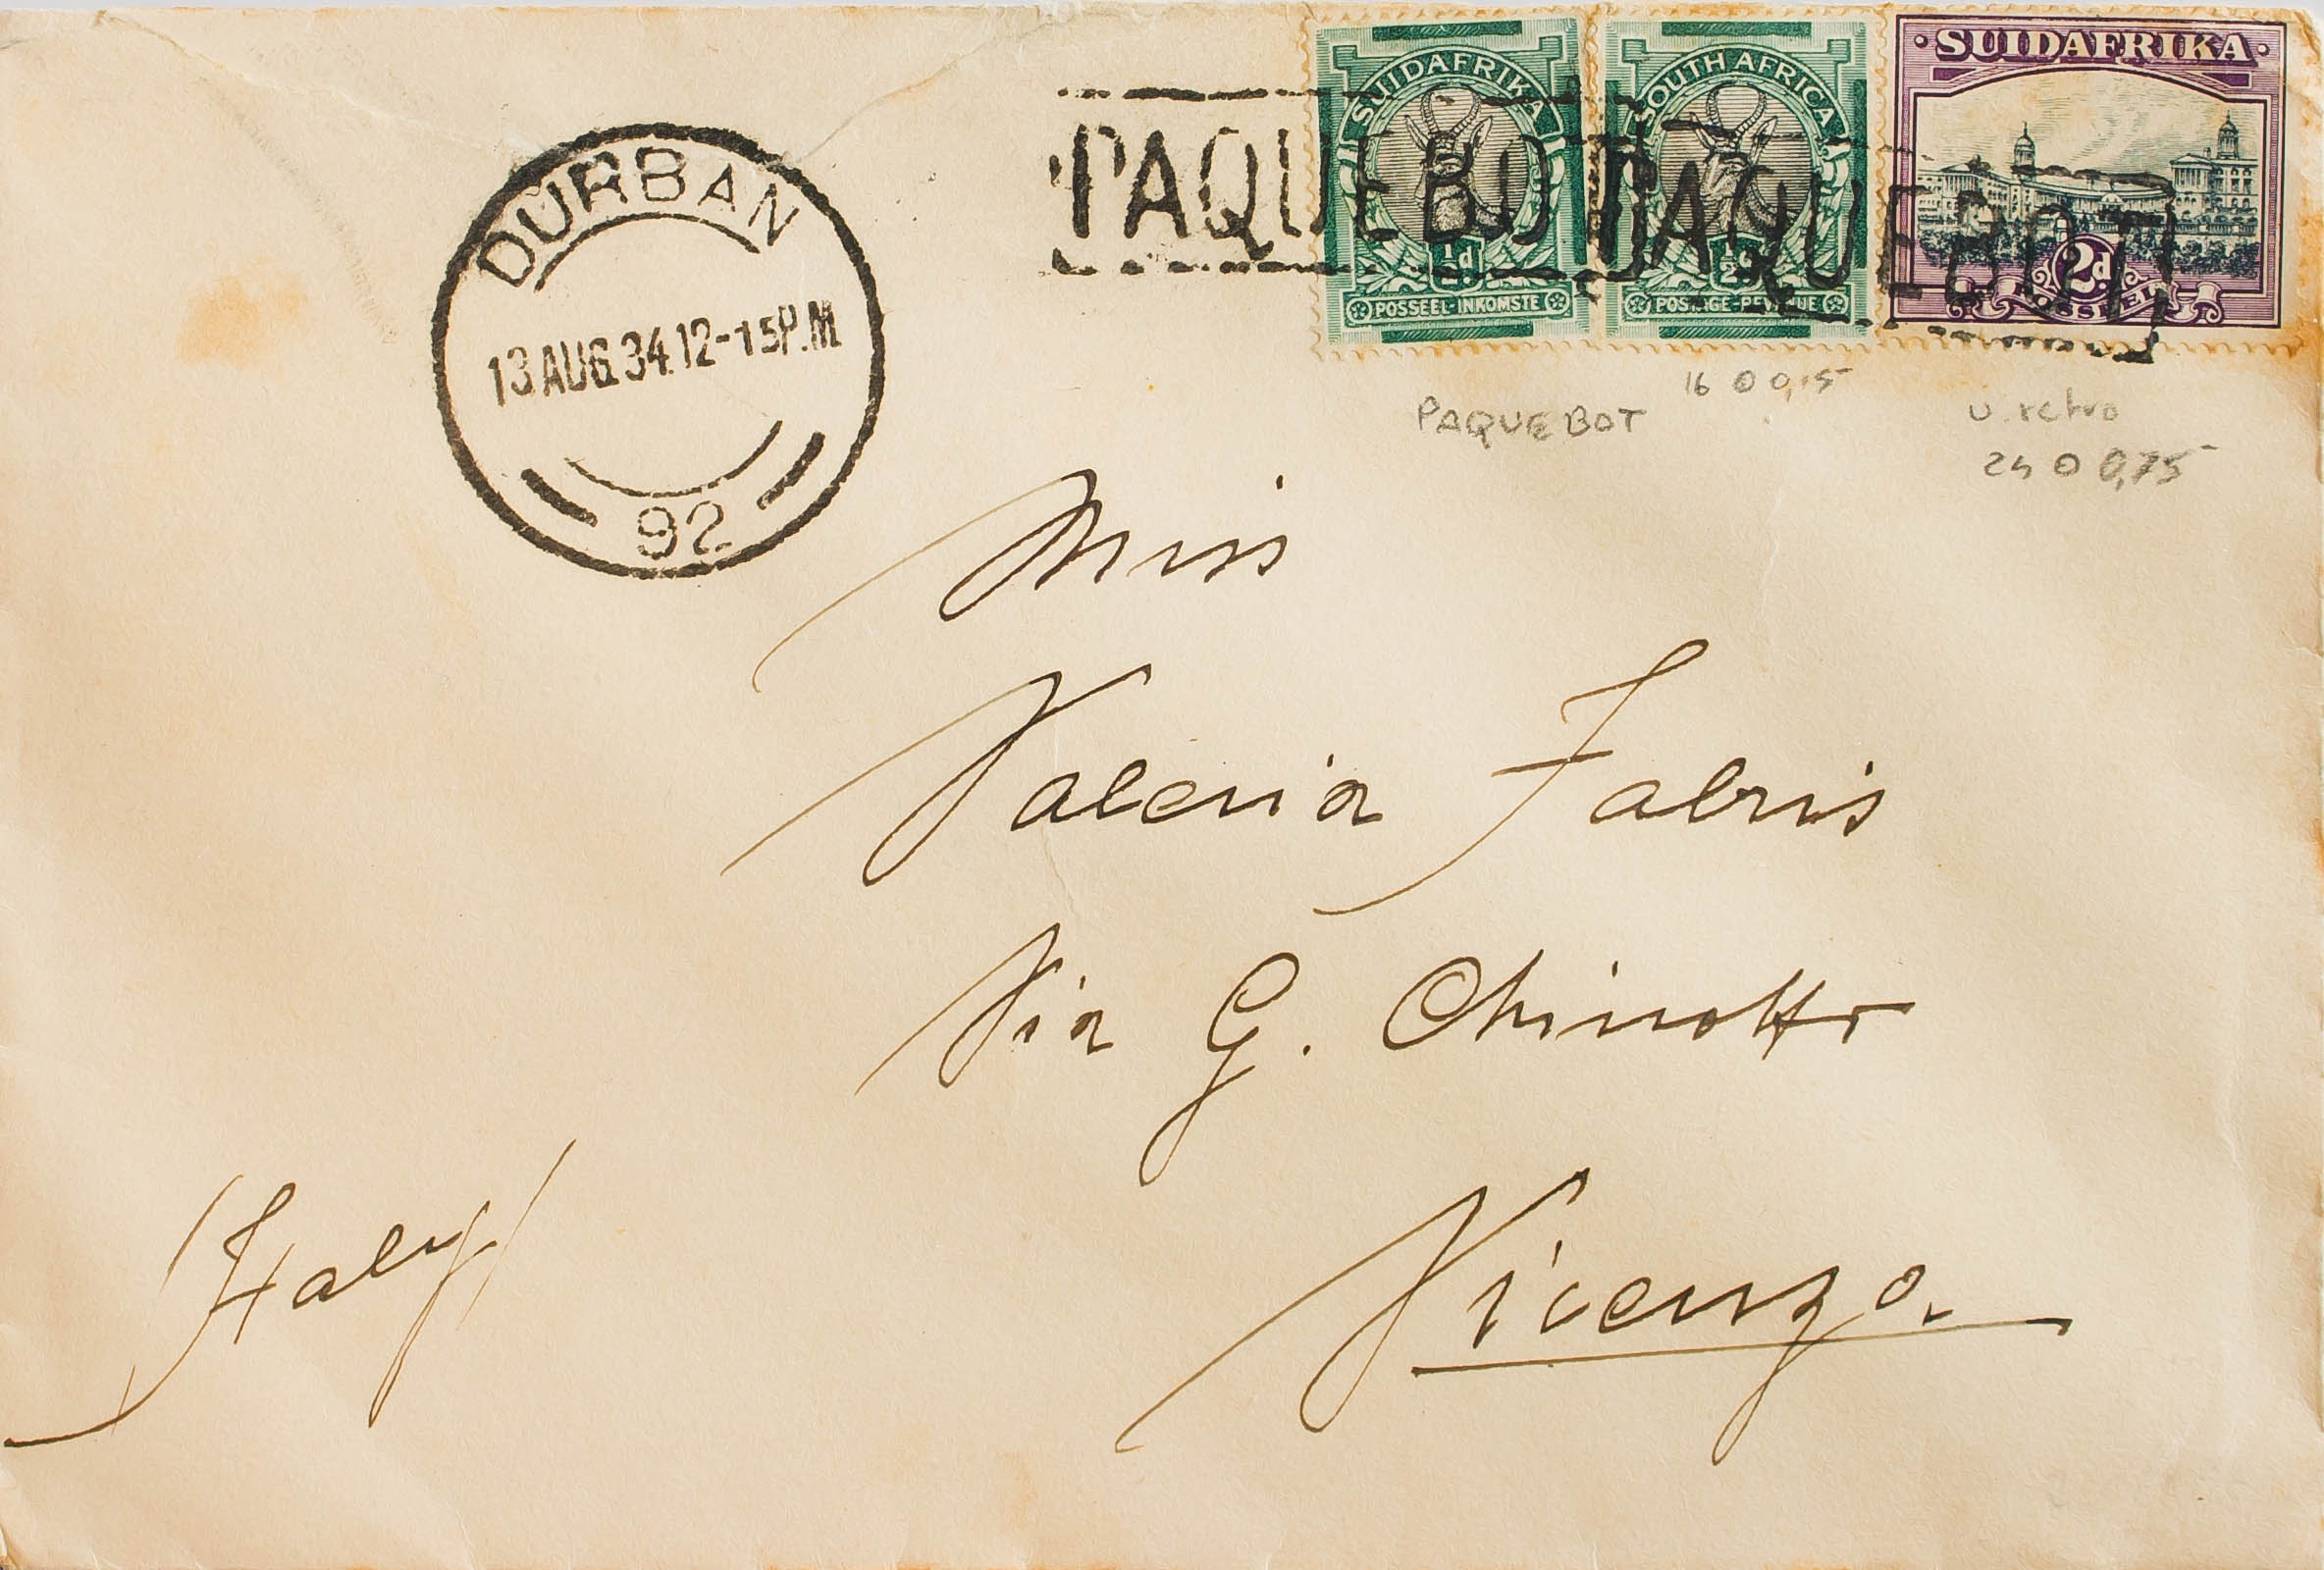 SUIDAFRIKA
½d
POSSEEL-INKOMSTE
SOUTH AFRICA
½d
POSTAGE-REVENUE
SUIDAFRIKA
2d
POSSEEL
PAQUEBOT
PAQUEBOT
DURBAN
13 AUG 34. 12-15 P.M
92
PAQUEBOT
16 0 0,15
retro
0,75
Miss
Valeria Fabris
Via G. Chinotto
Vicenza.
Italy